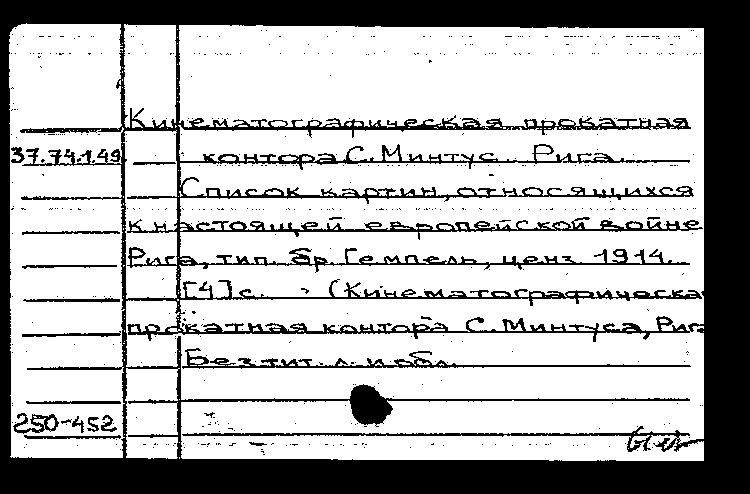 Кинематографическая прокатная
37.74.1.49 контора С. Минтус. Рига.
Список картин, относящихся
к настоящей европейской войне
Рига, тип. бр. Гемпель, ценз. 1914.
[4] с. (Кинематографическая
прокатная контора С. Минтуса, Рига
Без тит. л. и обл.
250-452